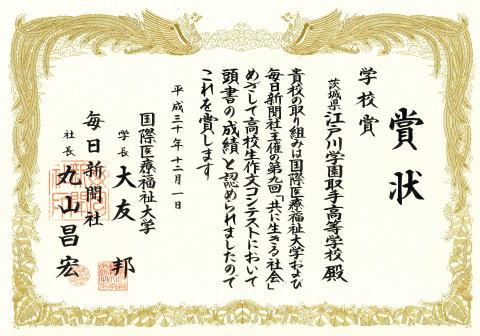 賞状
学校賞
茨城県江戸川学園取手高等学校殿
貴校の取り組みは国際医療福祉大学および
毎日新聞社主催の第九回「共に生きる社会」
めざして高校生作文コンテストにおいて
頭書の成績と認められましたので
これを賞します
平成三十年十二月一日
国際医療福祉大学
学長 大友 邦
毎日新聞社
社長 丸山昌宏